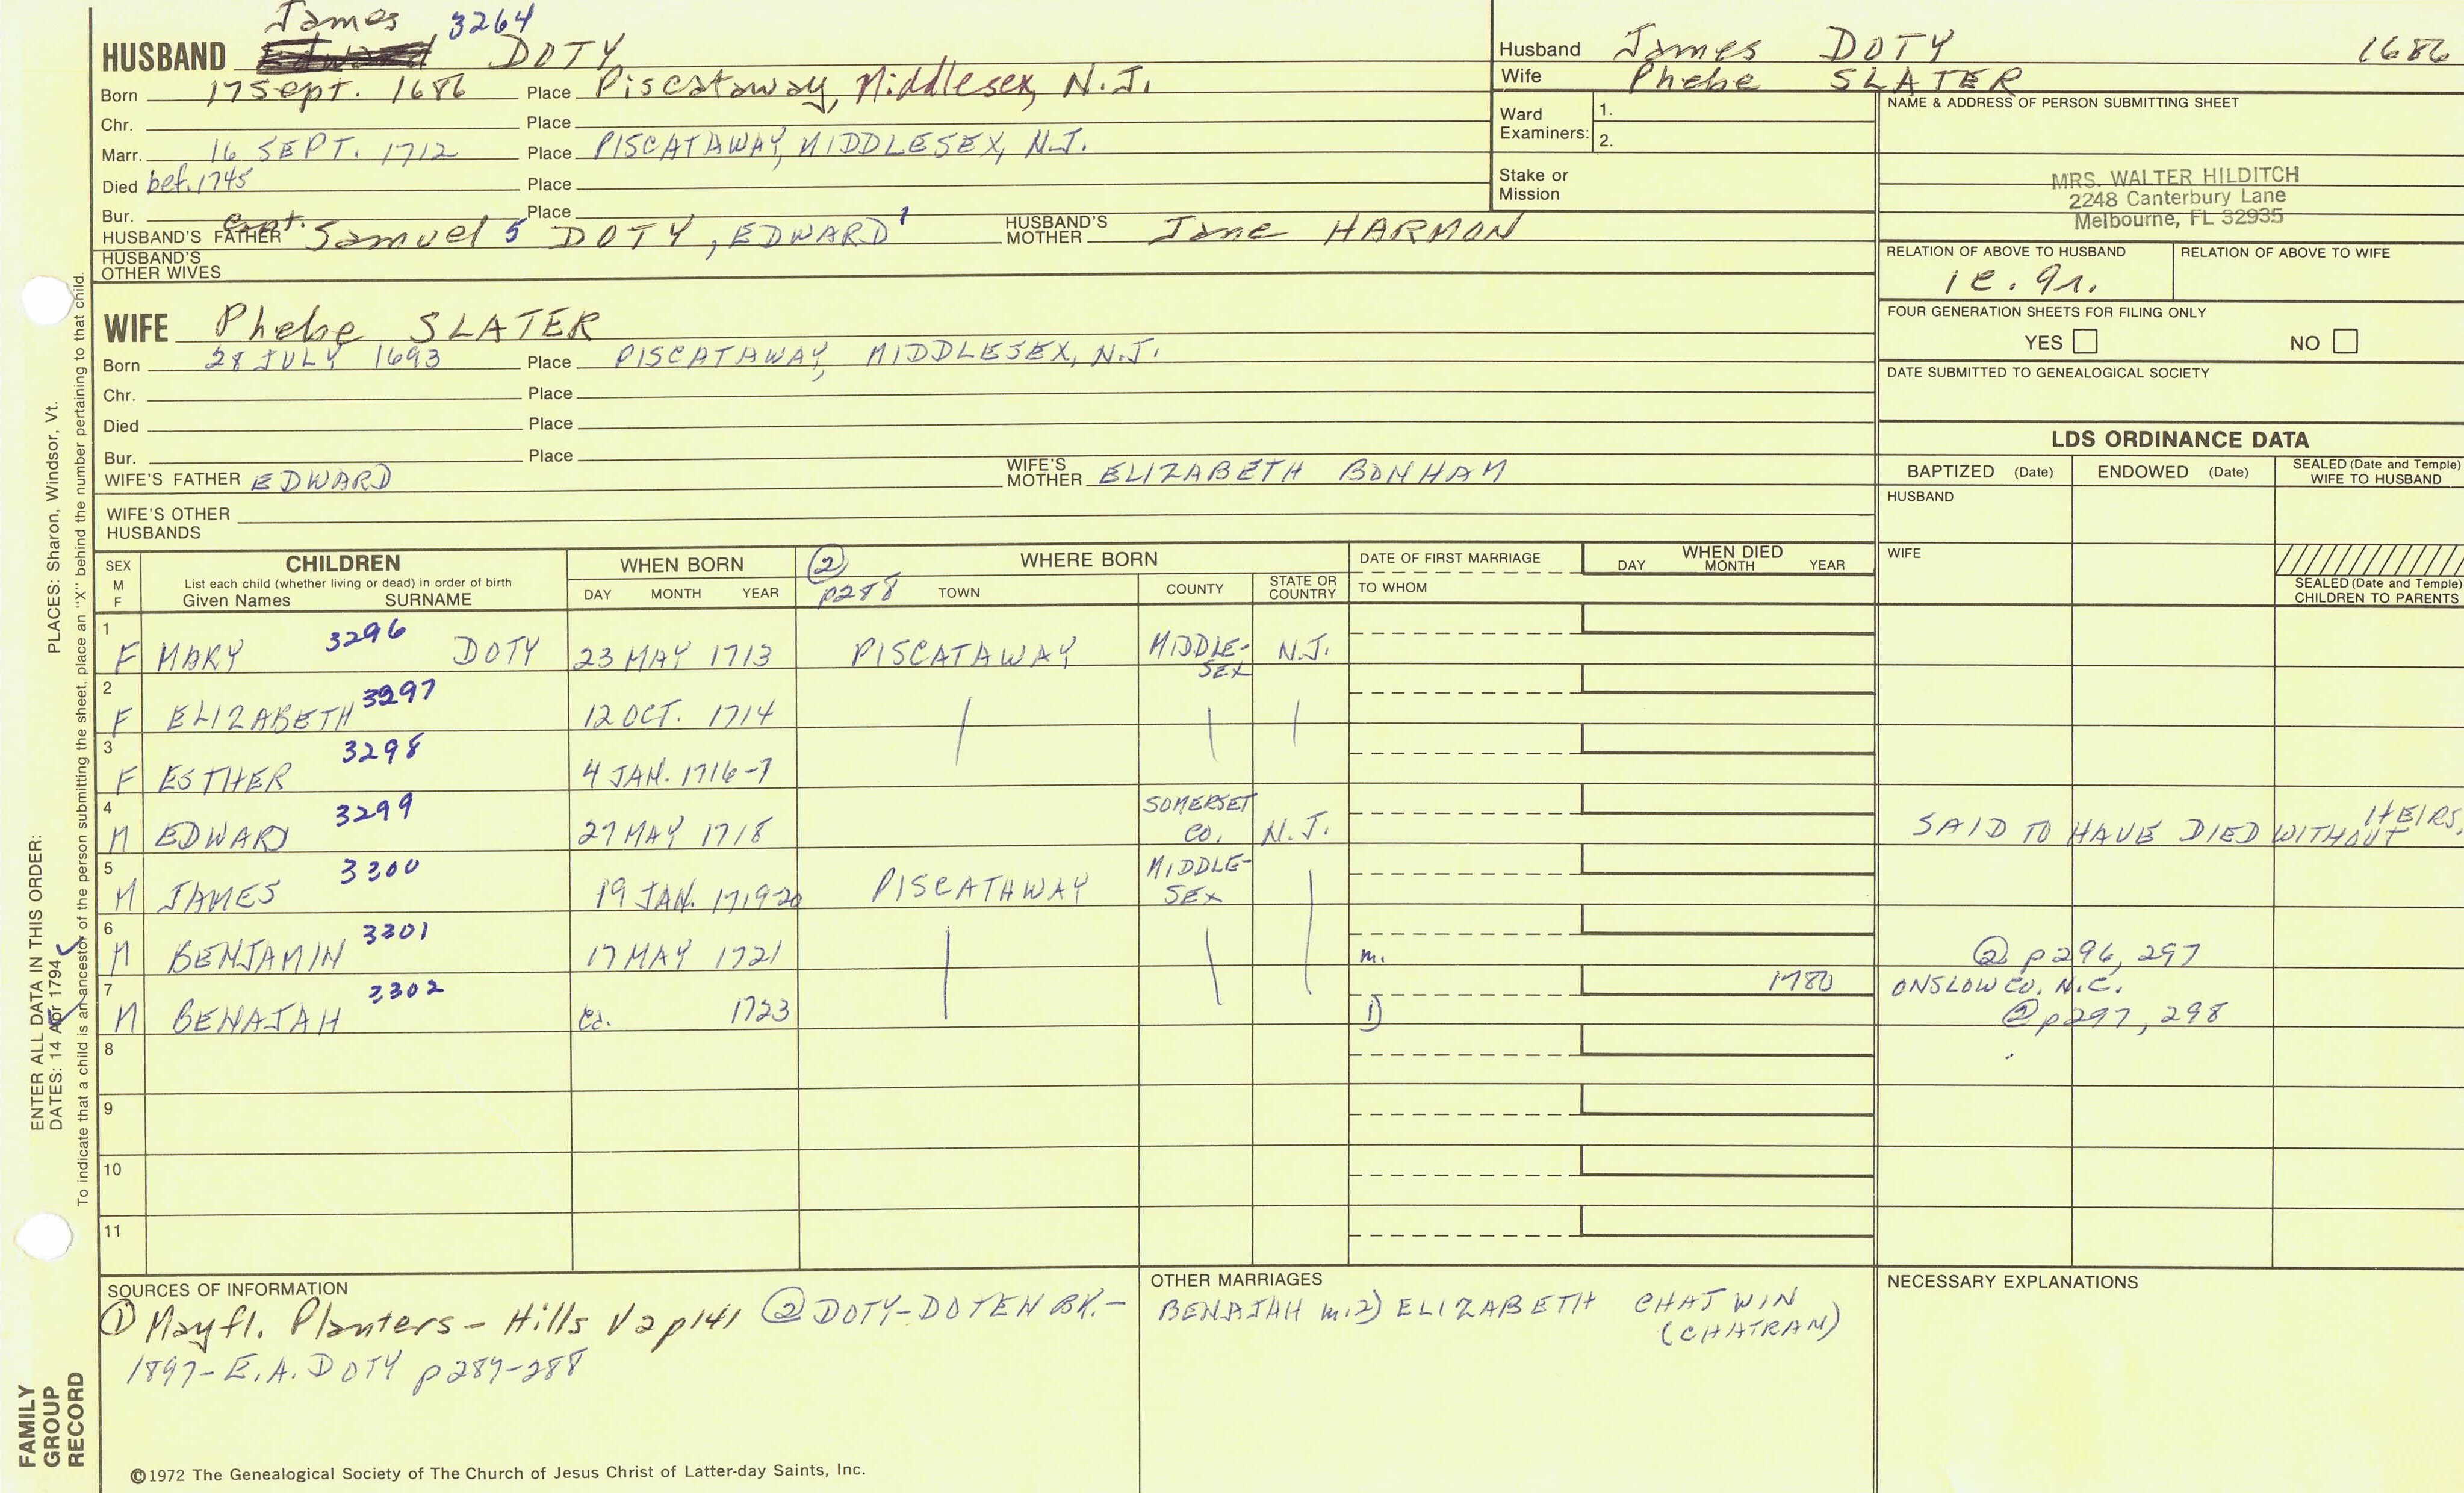 James 3264
HUSBAND Edward DOTY
Born 17 Sept. 1686 Place Piscataway, Middlesex, N.J.
Chr. Place
Marr. 16 SEPT. 1712 Place PISCATAWAY, MIDDLESEX, N.J.
Died bef. 1745 Place
Bur. Place
HUSBAND'S FATHER Capt. Samuel 5 DOTY, EDWARD 1 HUSBAND'S MOTHER Jane HARMON
HUSBAND'S OTHER WIVES
Husband James DOTY 1686
Wife Phebe SLATER
Ward Examiners: 1.
2.
Stake or Mission
NAME & ADDRESS OF PERSON SUBMITTING SHEET
MRS. WALTER HILDITCH
2248 Canterbury Lane
Melbourne, FL 32935
RELATION OF ABOVE TO HUSBAND RELATION OF ABOVE TO WIFE
FOUR GENERATION SHEETS FOR FILING ONLY
YES NO
DATE SUBMITTED TO GENEALOGICAL SOCIETY
WIFE Phebe SLATER
Born 28 JULY 1693 Place PISCATAWAY, MIDDLESEX, N.J.
Chr. Place
Died Place
Bur. Place
WIFE'S FATHER EDWARD WIFE'S MOTHER ELIZABETH BONHAM
WIFE'S OTHER HUSBANDS
LDS ORDINANCE DATA
BAPTIZED (Date) ENDOWED (Date) SEALED (Date and Temple) WIFE TO HUSBAND
HUSBAND
WIFE
SEALED (Date and Temple) CHILDREN TO PARENTS
SEX M F CHILDREN List each child (whether living or dead) in order of birth Given Names SURNAME
WHEN BORN DAY MONTH YEAR
② p288 WHERE BORN TOWN COUNTY STATE OR COUNTRY
DATE OF FIRST MARRIAGE TO WHOM
WHEN DIED DAY MONTH YEAR
1 F MARY 3296 DOTY 23 MAY 1713 PISCATAWAY MIDDLE-SEX N.J.
2 F ELIZABETH 3297 12 OCT. 1714
3 F ESTHER 3298 4 JAN. 1716-7
4 M EDWARD 3299 27 MAY 1718 SOMERSET CO. N.J. SAID TO HAVE DIED WITHOUT HEIRS.
5 M JAMES 3300 19 JAN. 1719-20 PISCATAWAY MIDDLE-SEX
6 M BENJAMIN 3301 17 MAY 1721 m. ② p296, 297
7 M BENAJAH 3302 ca. 1723 1) 1780 ONSLOW CO. N.C.
② p297, 298
8
9
10
11
SOURCES OF INFORMATION
① Mayfl. Planters - Hills V2 p141 ② DOTY-DOTEN BK.-
1897- E.A. DOTY p287-288
OTHER MARRIAGES
BENAJAH m. 2) ELIZABETH CHATWIN
(CHATRAM)
NECESSARY EXPLANATIONS
©1972 The Genealogical Society of The Church of Jesus Christ of Latter-day Saints, Inc.
ENTER ALL DATA IN THIS ORDER: PLACES: Sharon, Windsor, Vt.
DATES: 14 Apr 1794
To indicate that a child is an ancestor of the person submitting the sheet, place an "X" behind the number pertaining to that child.
FAMILY
GROUP
RECORD